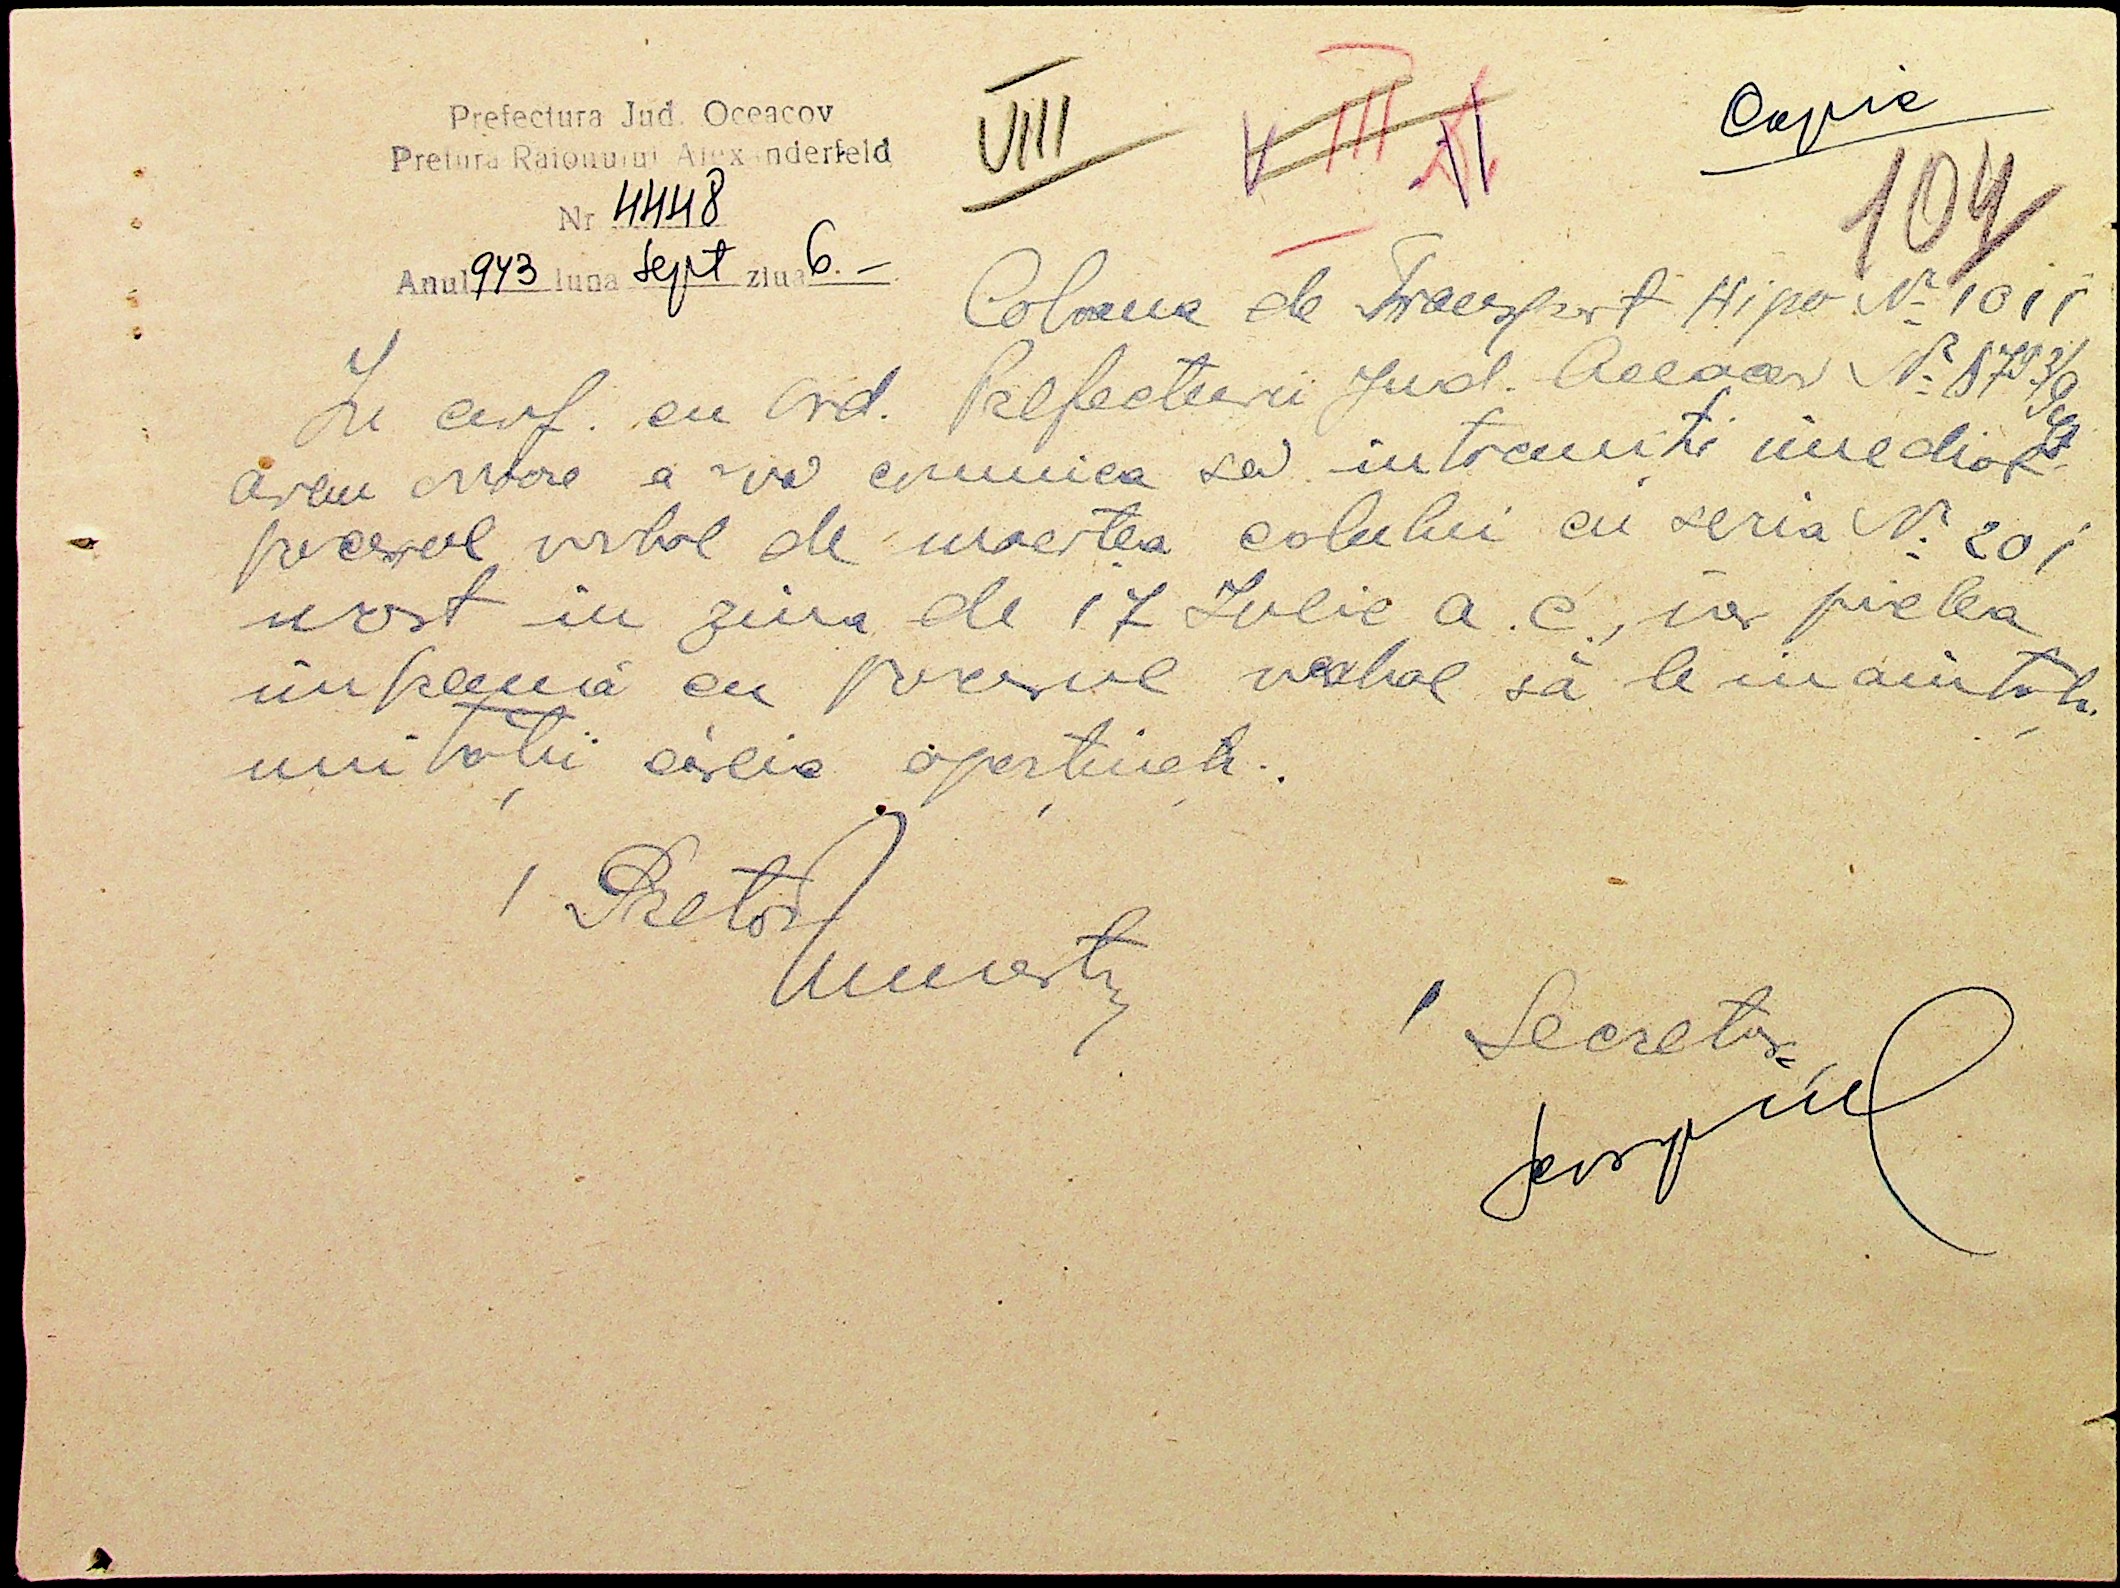 Prefectura Jud. Oceacov
Pretura Raionului Alexanderfeld
Nr 4448
Anul 943 luna Sept ziua 6. —
VIII
Copie
104
Coloana de Transport Hipo No 1011
In conf. cu Ord. Prefecturii Jud. Oceacov No
avem onoare a vă comunica să intocmiți imediat
procesul verbal de moartea calului cu seria No 201
mort in ziua de 17 Iulie a.c., iar pielea
impreună cu procesul verbal să le inaintați
unității căreia aparțineți.
/ Pretor
/ Secretar